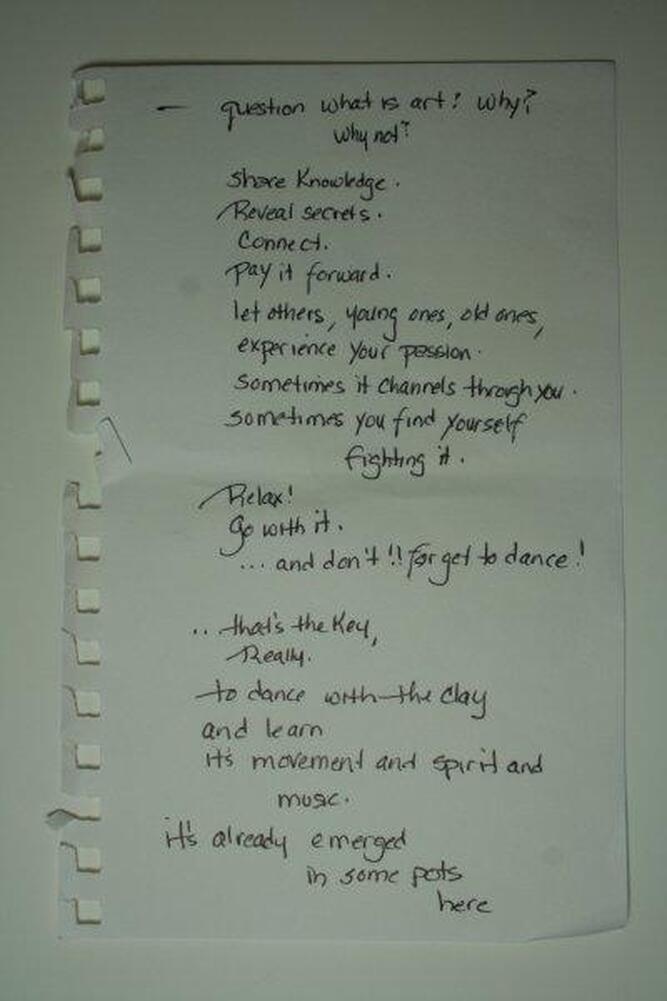 — question what is art? Why?
Why not?
Share Knowledge.
Reveal secrets.
Connect.
Pay it forward.
let others, young ones, old ones,
experience your passion.
Sometimes it channels through you.
sometimes you find yourself
fighting it.
Relax!
Go with it.
... and don't!! forget to dance!
.. that's the Key,
Really.
to dance with the clay
and learn
it's movement and spirit and
music.
it's already emerged
in some pots
here